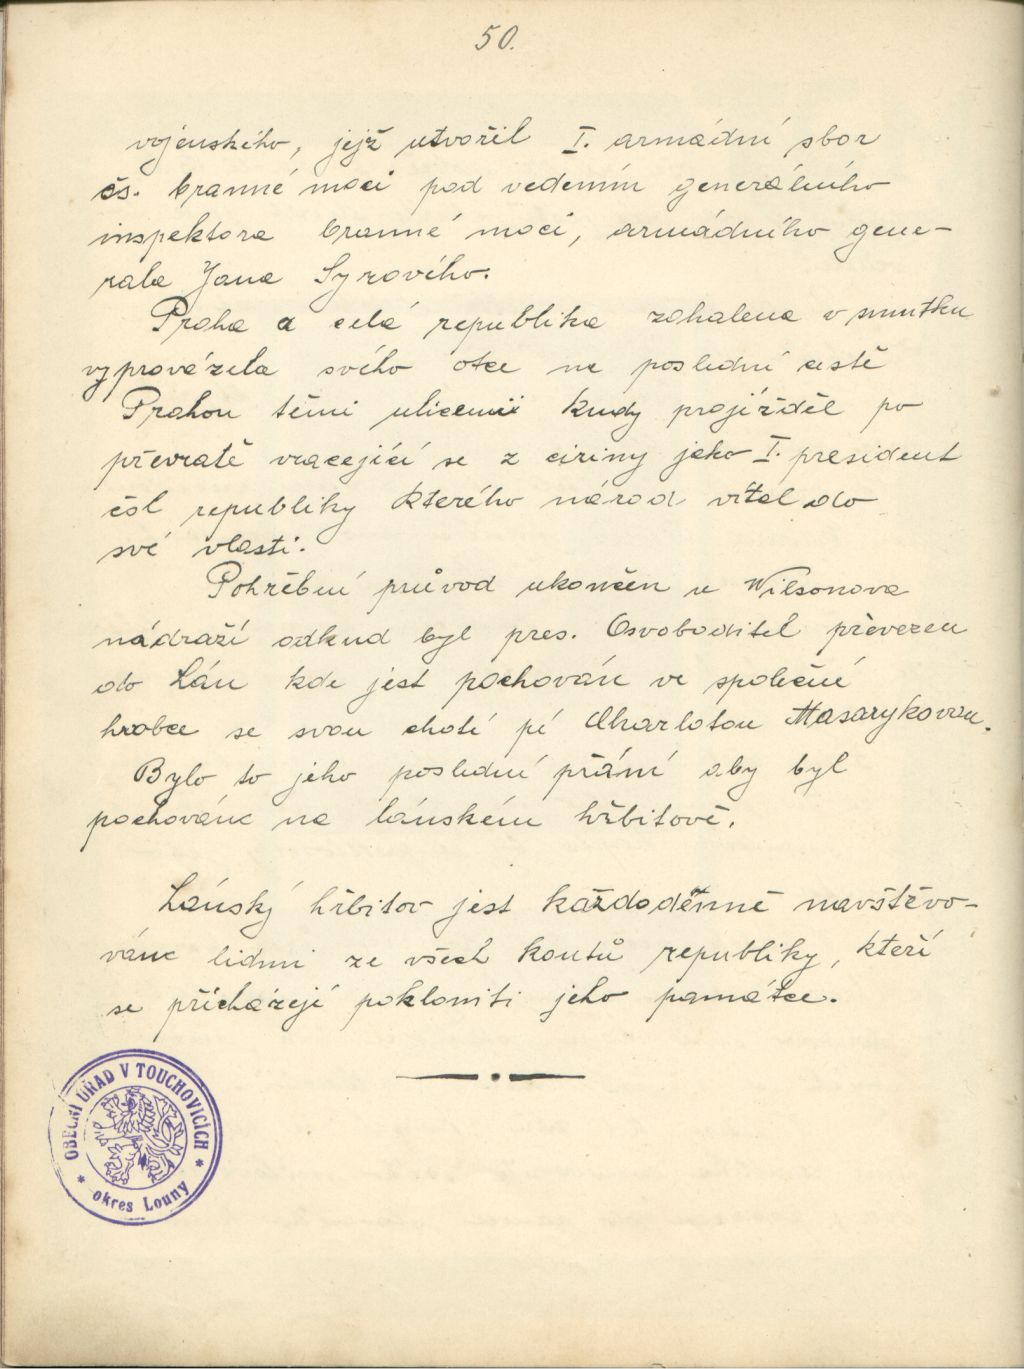 50.
vojenského, jejž utvořil I. armádní sbor
čs. branné moci pod vedením generálního
inspektora branné moci, armádního gene-
rala Jana Syrového.
Praha a celá republika zahalena v smutku
vyprovázela svého otce na poslední cestě
Prahou těmi ulicemi kudy projížděl po
převratě vracející se z ciziny jako I. president
čsl republiky kterého národ vítal do
své vlasti.
Pohřební průvod ukončen u Wilsonova
nádraží odkud byl pres. Osvoboditel převezen
do Lán kde jest pochován ve společné
hrobce se svou chotí pí Charlotou Masarykovou.
Bylo to jeho poslední přání aby byl
pochován na lánském hřbitově.
Lánský hřbitov jest každodenně navštěvo-
ván lidmi ze všech koutů republiky, kteří
se přicházejí pokloniti jeho památce.
OBECNÍ ÚŘAD V TOUCHOVICÍCH
* okres Louny *